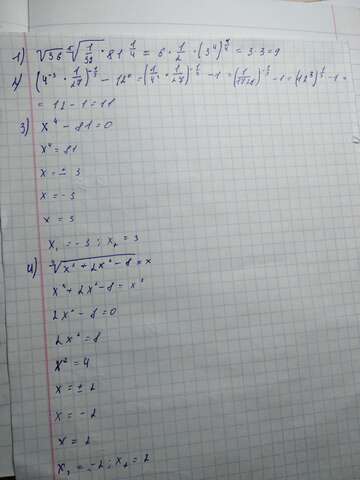 1) √36 · ⁵√(1/32) · 81^(1/4) = 6 · 1/2 · (3⁴)^(1/4) = 3·3=9
2) (4⁻³ · 1/27)^(-1/3) - 12⁰ = (1/4³ · 1/27)^(-1/3) - 1 = (1/1728)^(-1/3) - 1 = (12³)^(1/3) - 1 =
= 12 - 1 = 11
3) x⁴ - 81 = 0
x⁴ = 81
x = ± 3
x = -3
x = 3
x₁ = -3 ; x₂ = 3
4) ³√(x³ + 2x² - 8) = x
x³ + 2x² - 8 = x³
2x² - 8 = 0
2x² = 8
x² = 4
x = ± 2
x = -2
x = 2
x₁ = -2 ; x₂ = 2